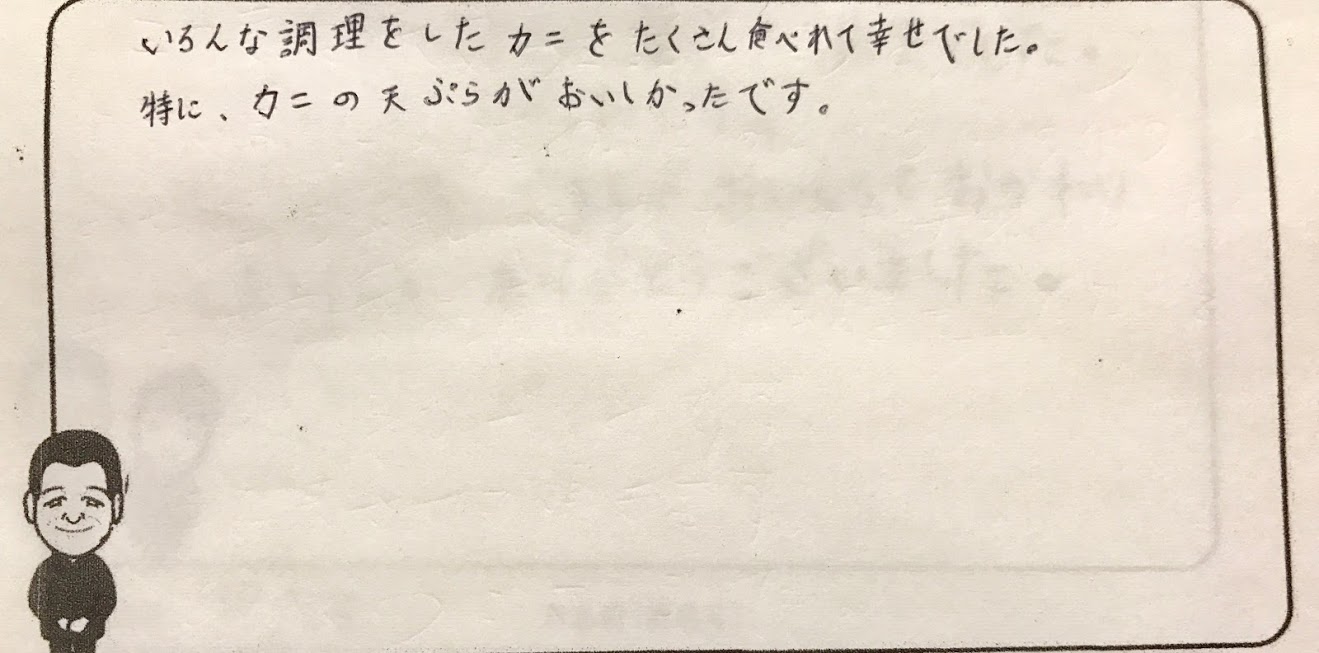 いろんな調理をしたカニをたくさん食べれて幸せでした。
特に、カニの天ぷらがおいしかったです。